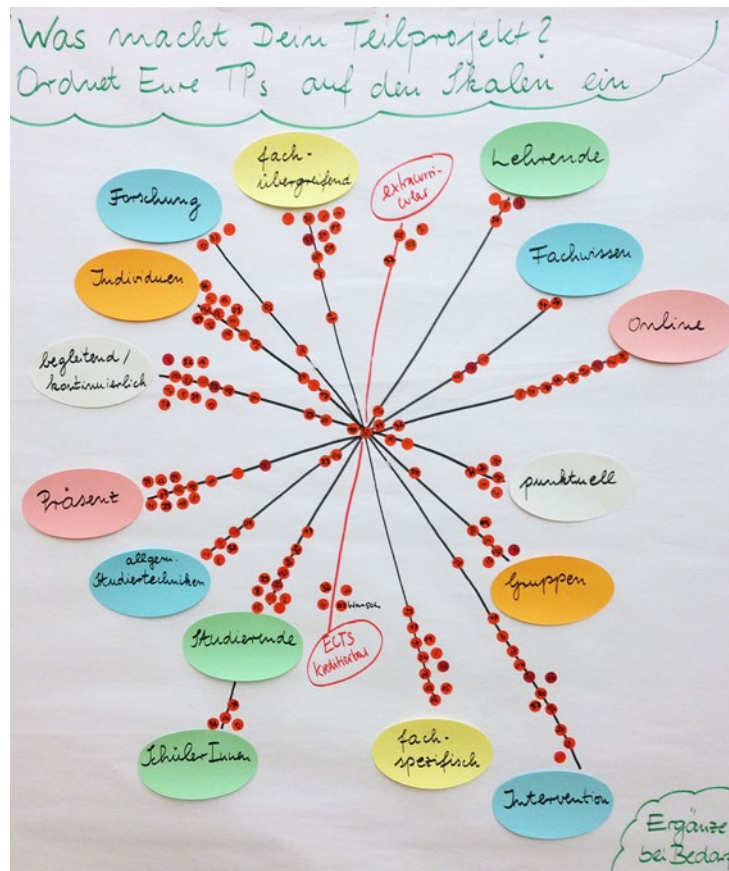 Was macht Dein Teilprojekt?
Ordnet Eure TPs auf den Skalen ein
fach-
übergreifend
extracurri-
cular
Lehrende
Forschung
Fachwissen
Individuen
Online
begleitend/
kontinuierlich
Präsenz
punktuell
allgem.
Studiertechniken
Gruppen
Studierende
Wunsch
ECTS
kreditierbar
SchülerInnen
fach-
spezifisch
Intervention
Ergänze
bei Bedar